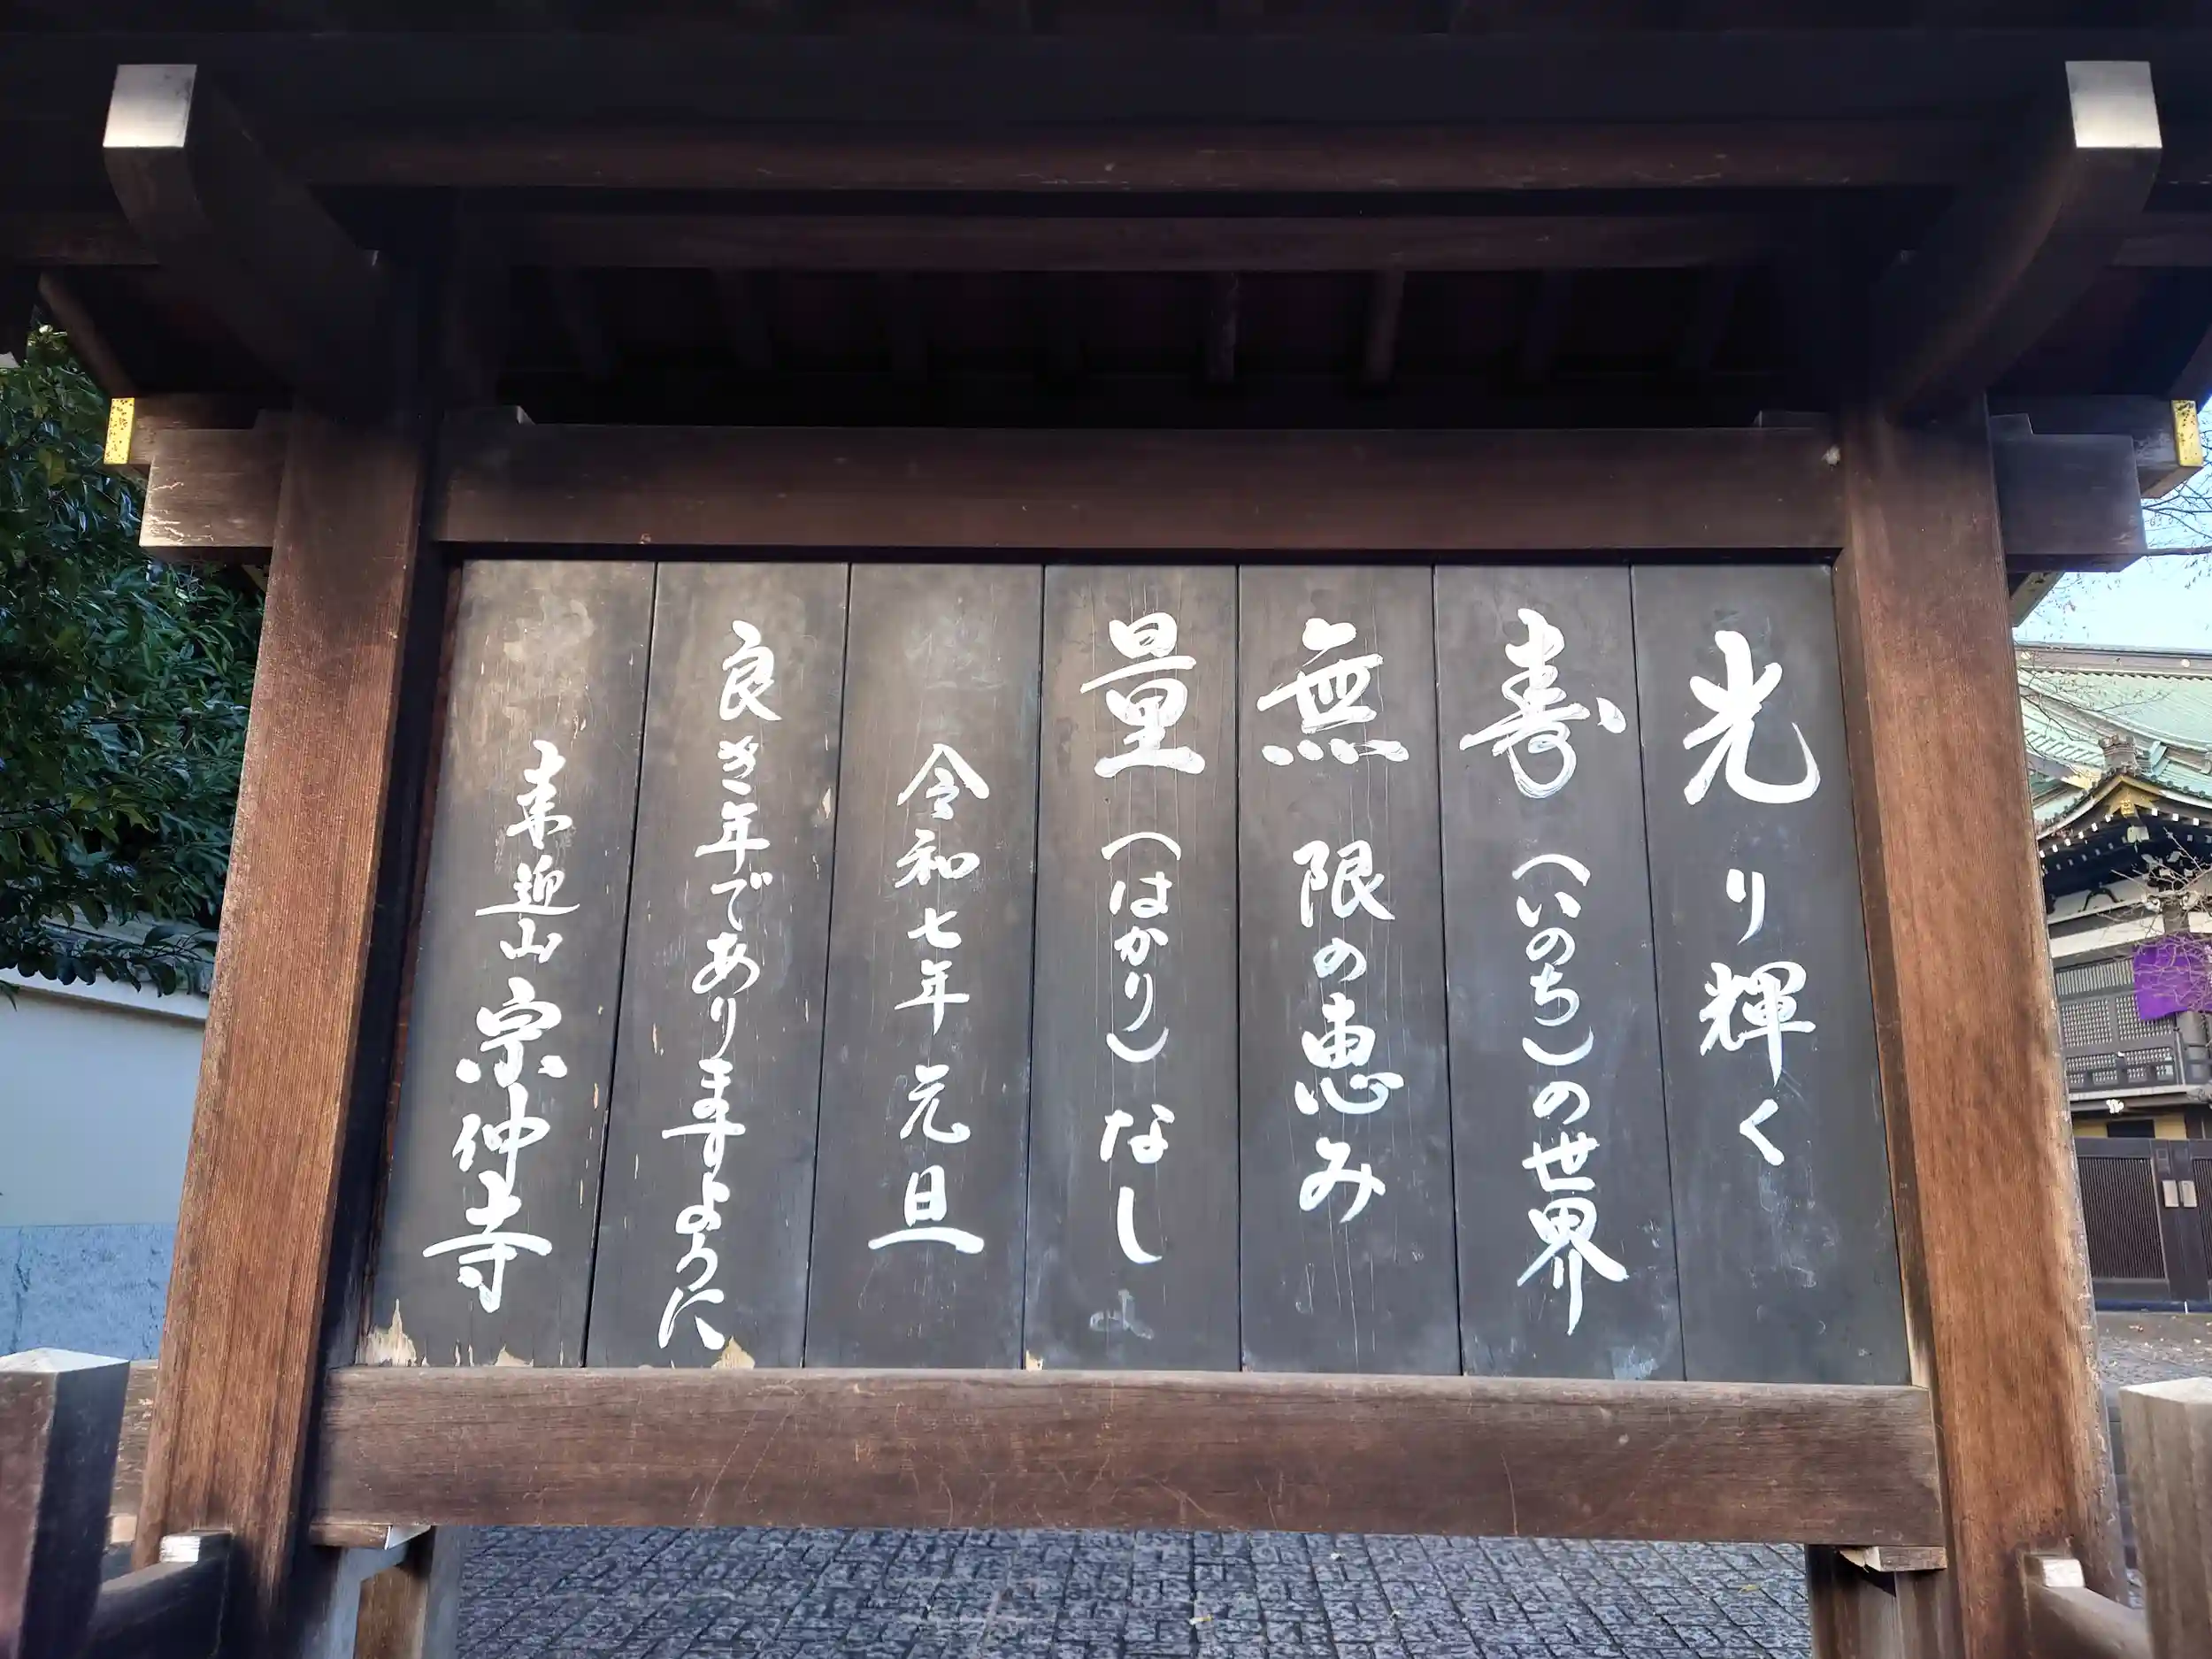 光り輝く
寿（いのち）の世界
無限の恵み
量（はかり）なし
令和七年元旦
良き年でありますように
来迎山宗仲寺